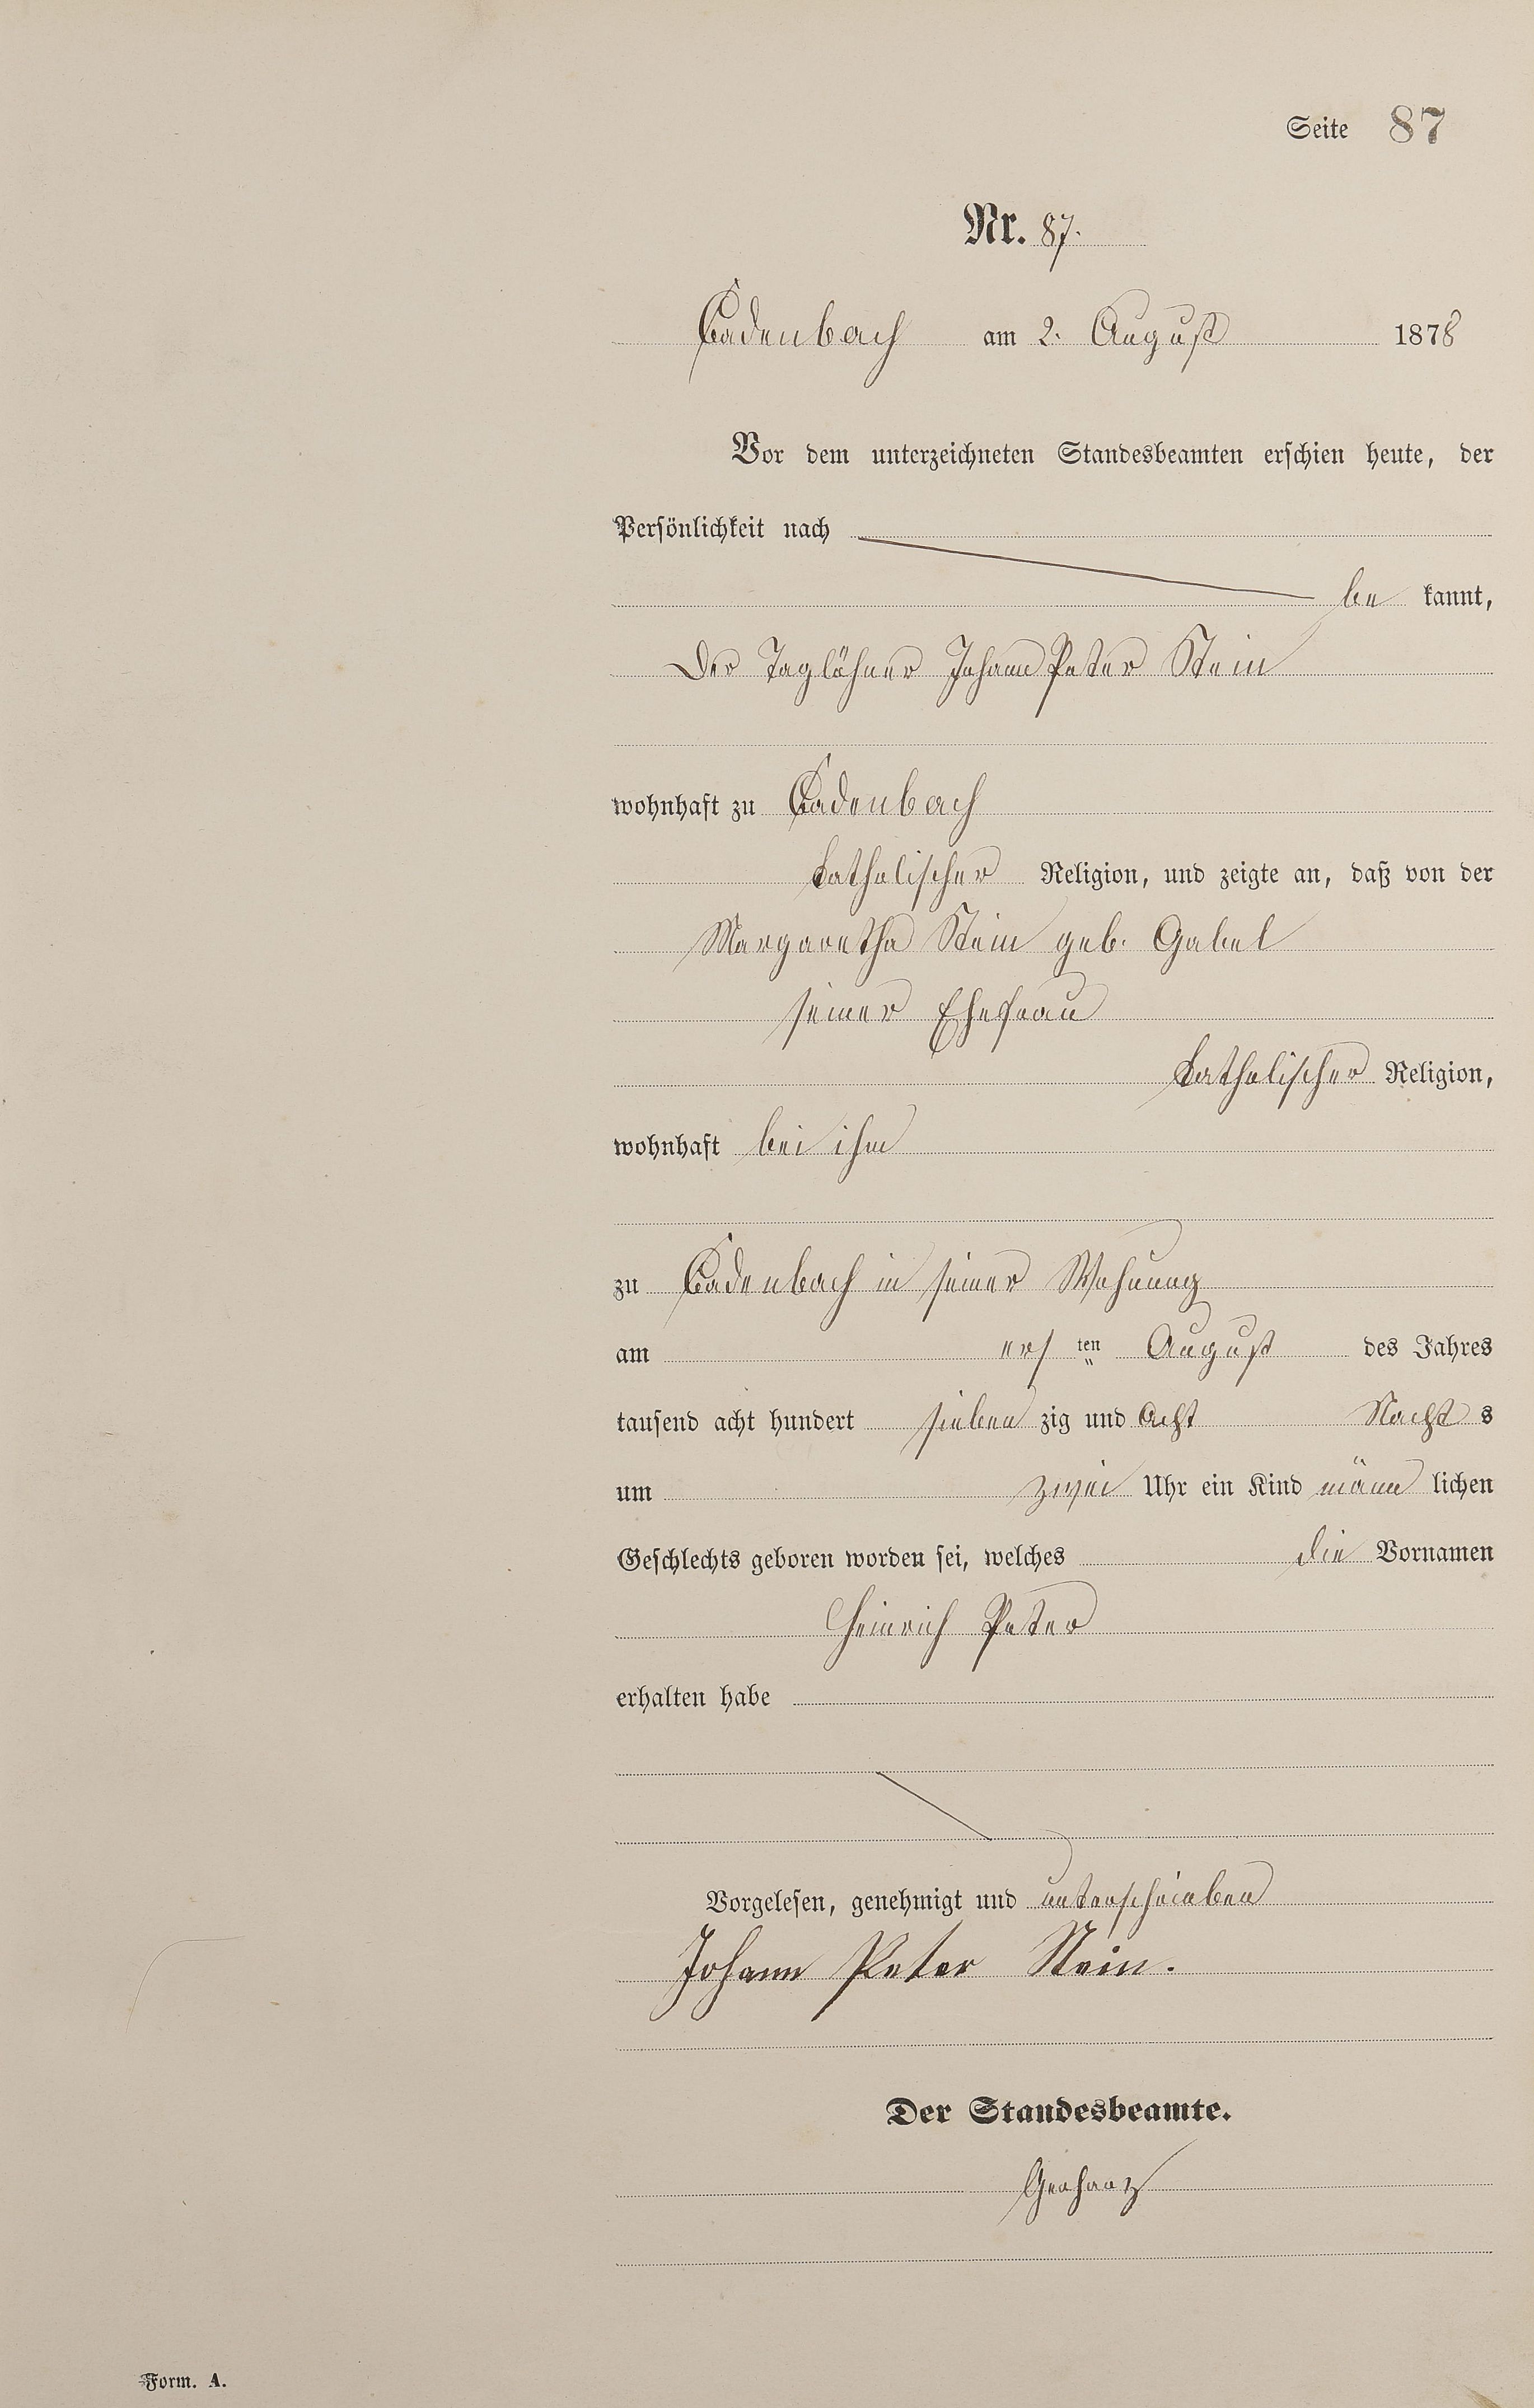 Seite 87
Nr. 87.
Cadenbach am 2. August 1878
Vor dem unterzeichneten Standesbeamten erschien heute, der
Persönlichkeit nach
be kannt,
Der Taglöhner Johann Peter Stein
wohnhaft zu Cadenbach
katholischer Religion, und zeigte an, daß von der
Margaretha Stein geb. Gabel
seiner Ehefrau
katholischer Religion,
wohnhaft bei ihm
zu Cadenbach in seiner Wohnung
am ers ten August des Jahres
tausend acht hundert sieben zig und acht Nacht s
um zwei Uhr ein Kind männ lichen
Geschlechts geboren worden sei, welches die Vornamen
Heinrich Peter
erhalten habe
Vorgelesen, genehmigt und unterschrieben
Johann Peter Stein.
Der Standesbeamte.
Gerharz
Form. A.